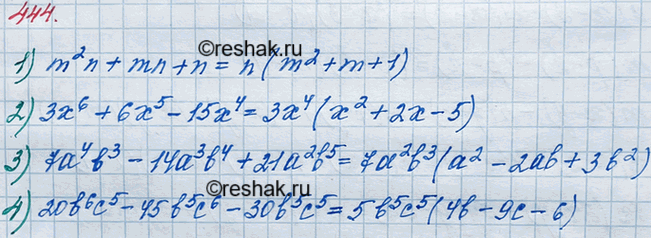 444.
©reshak.ru
1) m²n + mn + n = n(m² + m + 1)
2) 3x⁶ + 6x⁵ - 15x⁴ = 3x⁴(x² + 2x - 5)
3) 7a⁴b³ - 14a³b⁴ + 21a²b⁵ = 7a²b³(a² - 2ab + 3b²)
©reshak.ru
4) 20b⁶c⁵ - 45b⁵c⁶ - 30b⁵c⁵ = 5b⁵c⁵(4b - 9c - 6)